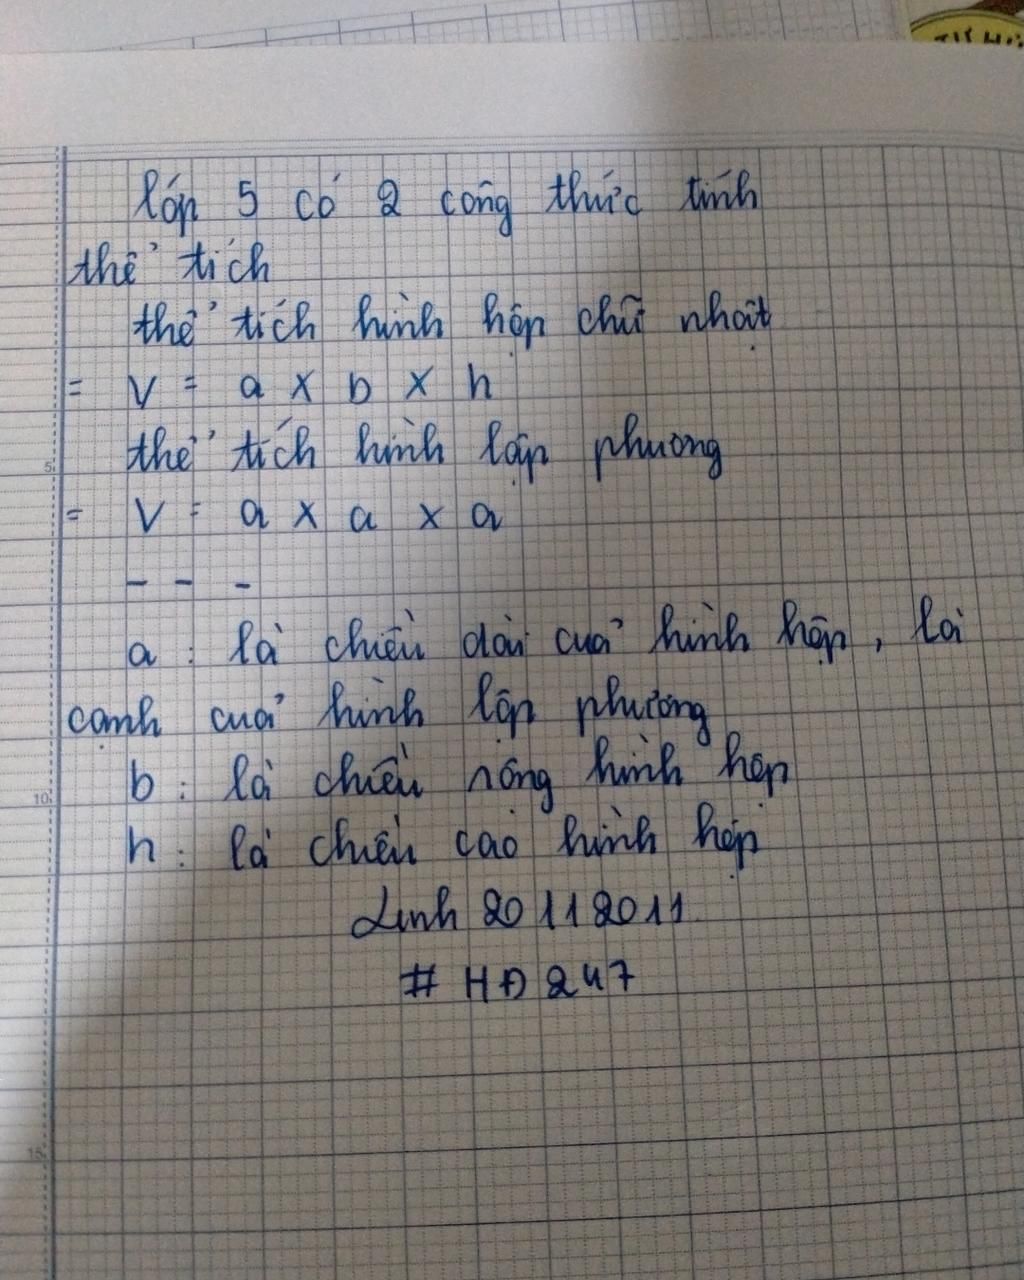 lớp 5 có 2 công thức tính
thể tích
thể tích hình hộp chữ nhật
= V = a x b x h
thể tích hình lập phương
= V = a x a x a
- - -
a : là chiều dài của hình hộp, là
cạnh của hình lập phương
b : là chiều rông hình hộp
h : là chiều cao hình hộp
Linh 20112011
# HĐ247
5
10
15